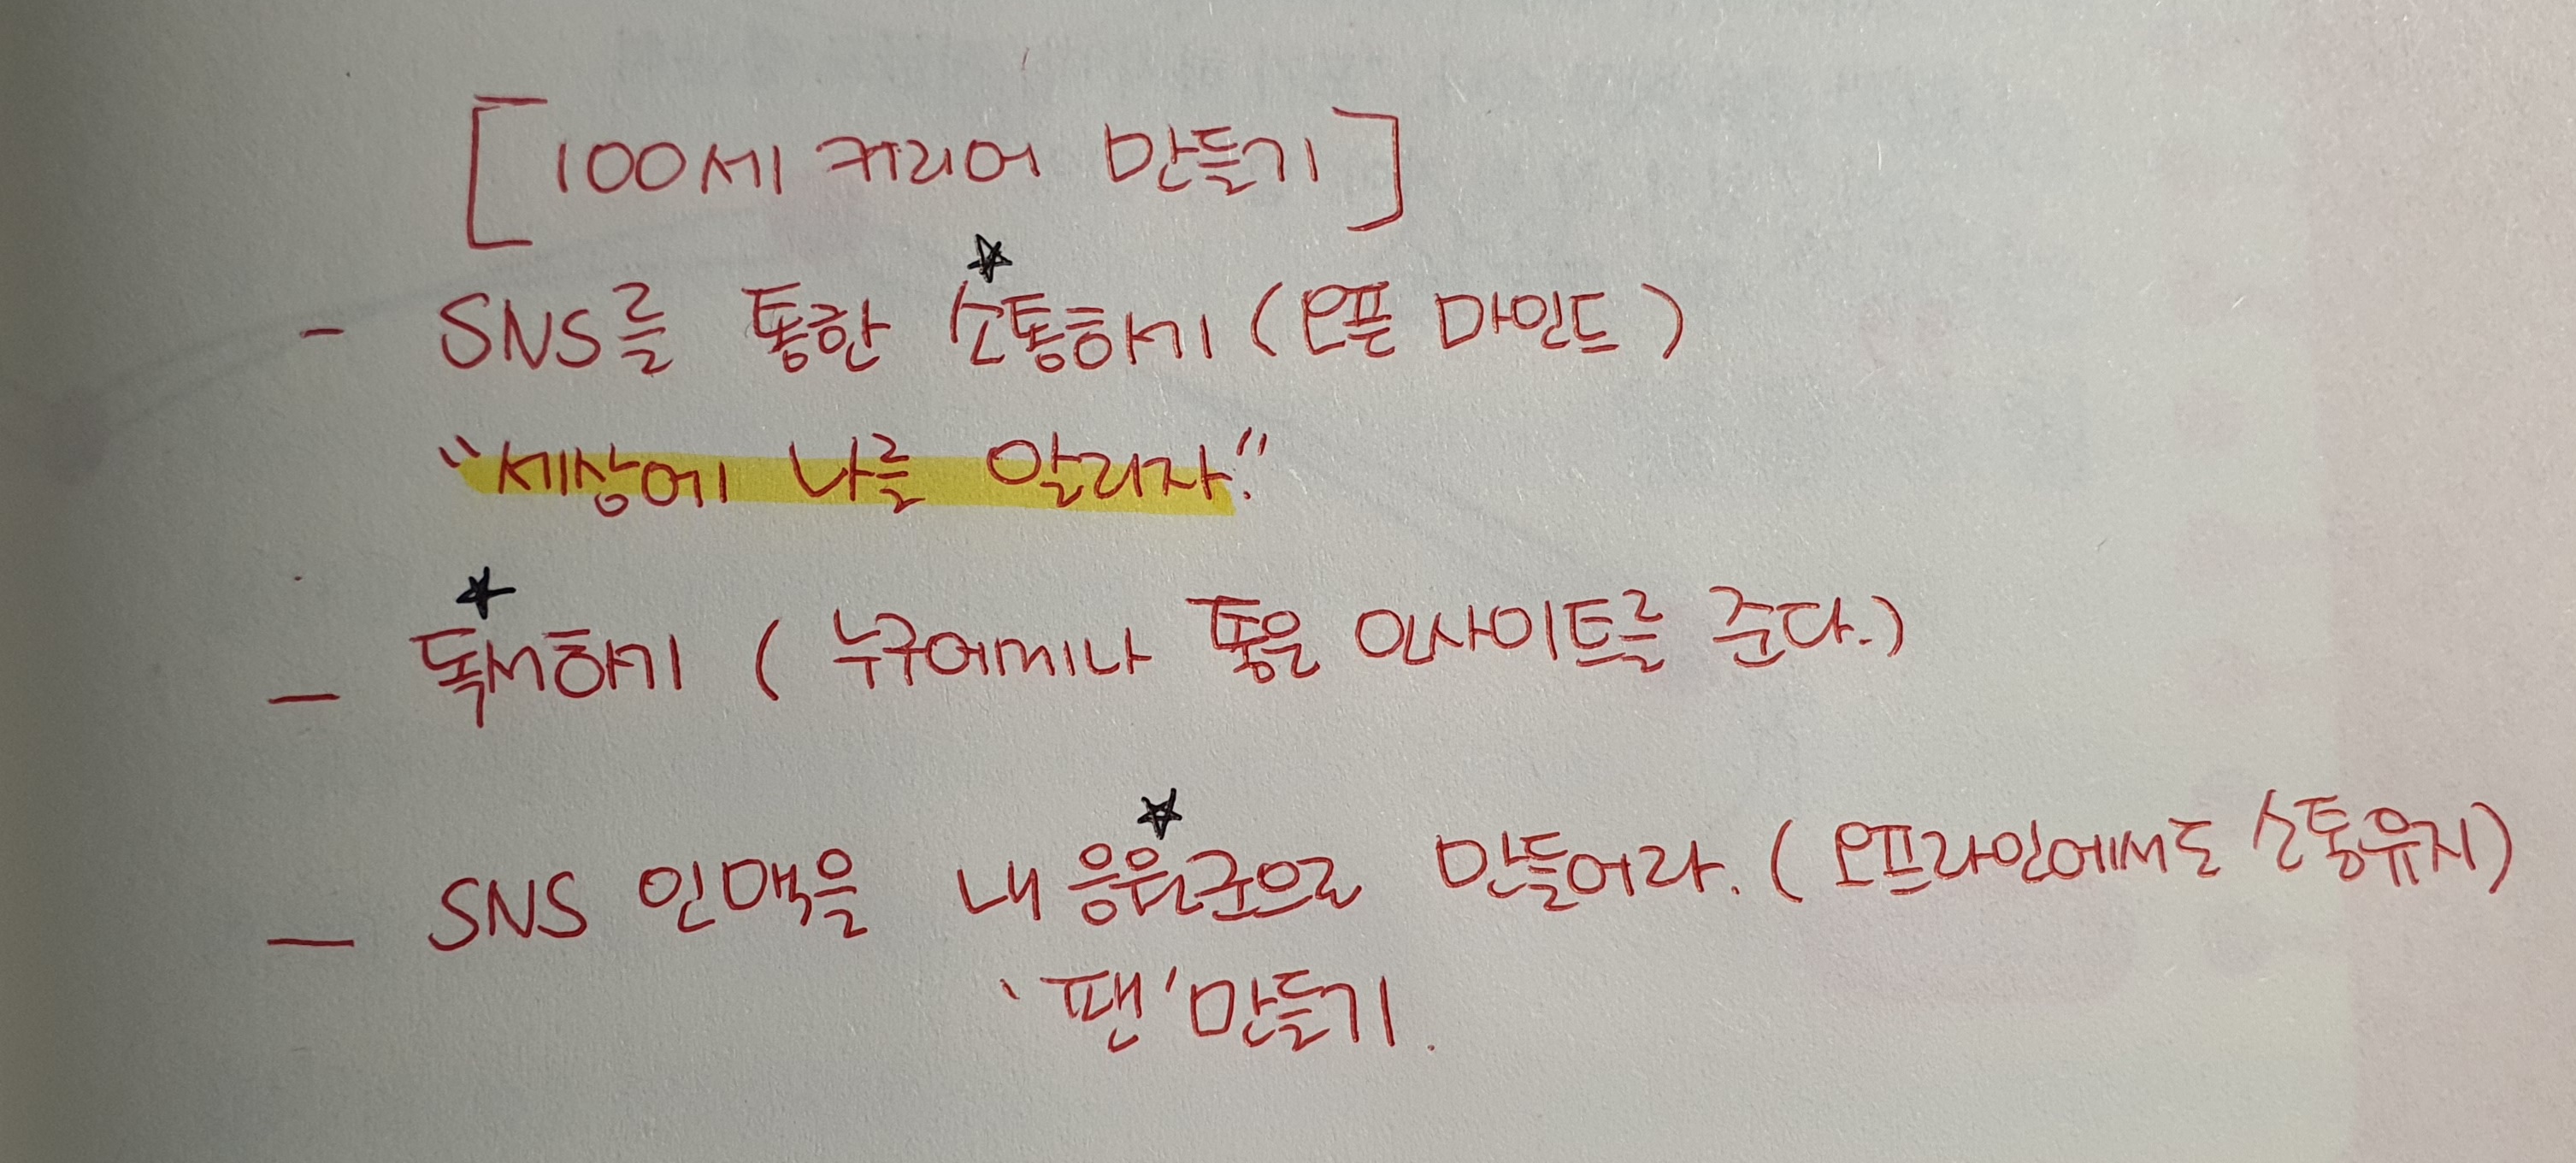 [100세 커리어 만들기]
- SNS를 통한 소통하기 (오픈 마인드)
"세상에 나를 알리자."
- 독서하기 (누구에게나 좋은 인사이트를 준다.)
- SNS 인맥을 내 응원군으로 만들어라. (오프라인에서도 소통유지)
'팬' 만들기.